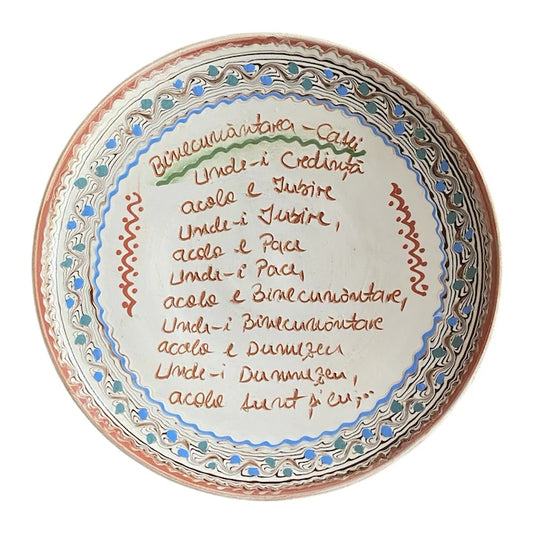 Binecuvântarea - Casei
Unde-i Credință
acolo e Iubire
Unde-i Iubire,
acolo e Pace
Unde-i Pace,
acolo e Binecuvântare,
Unde-i Binecuvântare
acolo e Dumnezeu
Unde-i Dumnezeu,
acolo sunt și eu,..